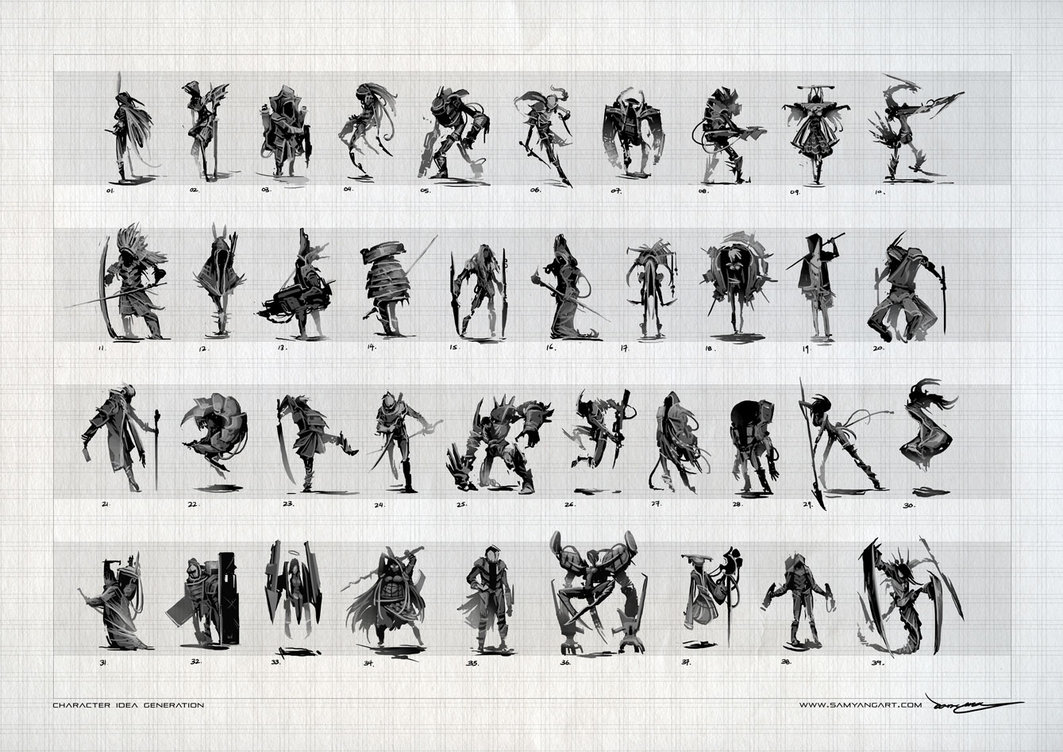 01. 02. 03. 04. 05. 06. 07. 08. 09. 10.
11. 12. 13. 14. 15. 16. 17. 18. 19. 20.
21. 22. 23. 24. 25. 26. 27. 28. 29. 30.
31. 32. 33. 34. 35. 36. 37. 38. 39.
CHARACTER IDEA GENERATION
WWW.SAMYANGART.COM